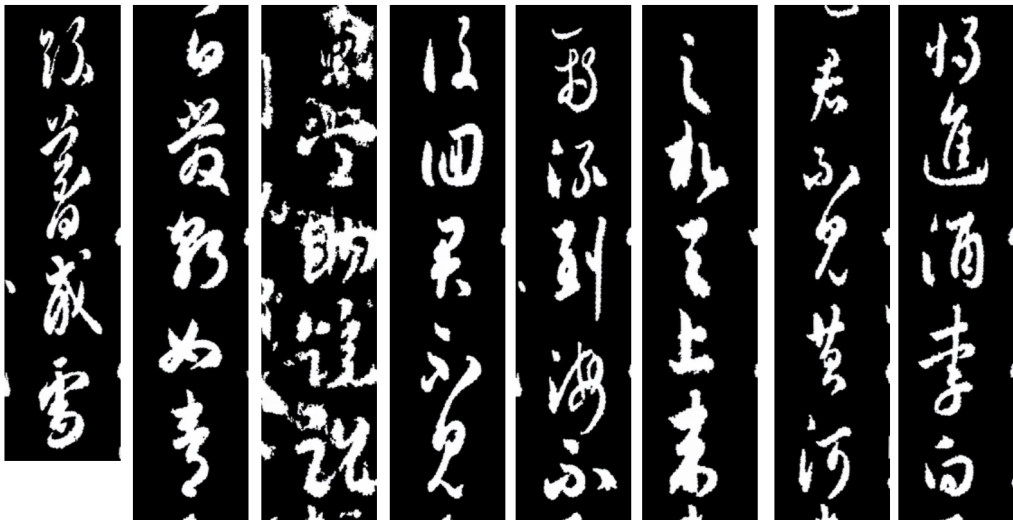 將進酒李白
君不見黃河
之水天上来
奔流到海不
復回君不見
高堂明鏡
白發朝如青
絲暮成雪